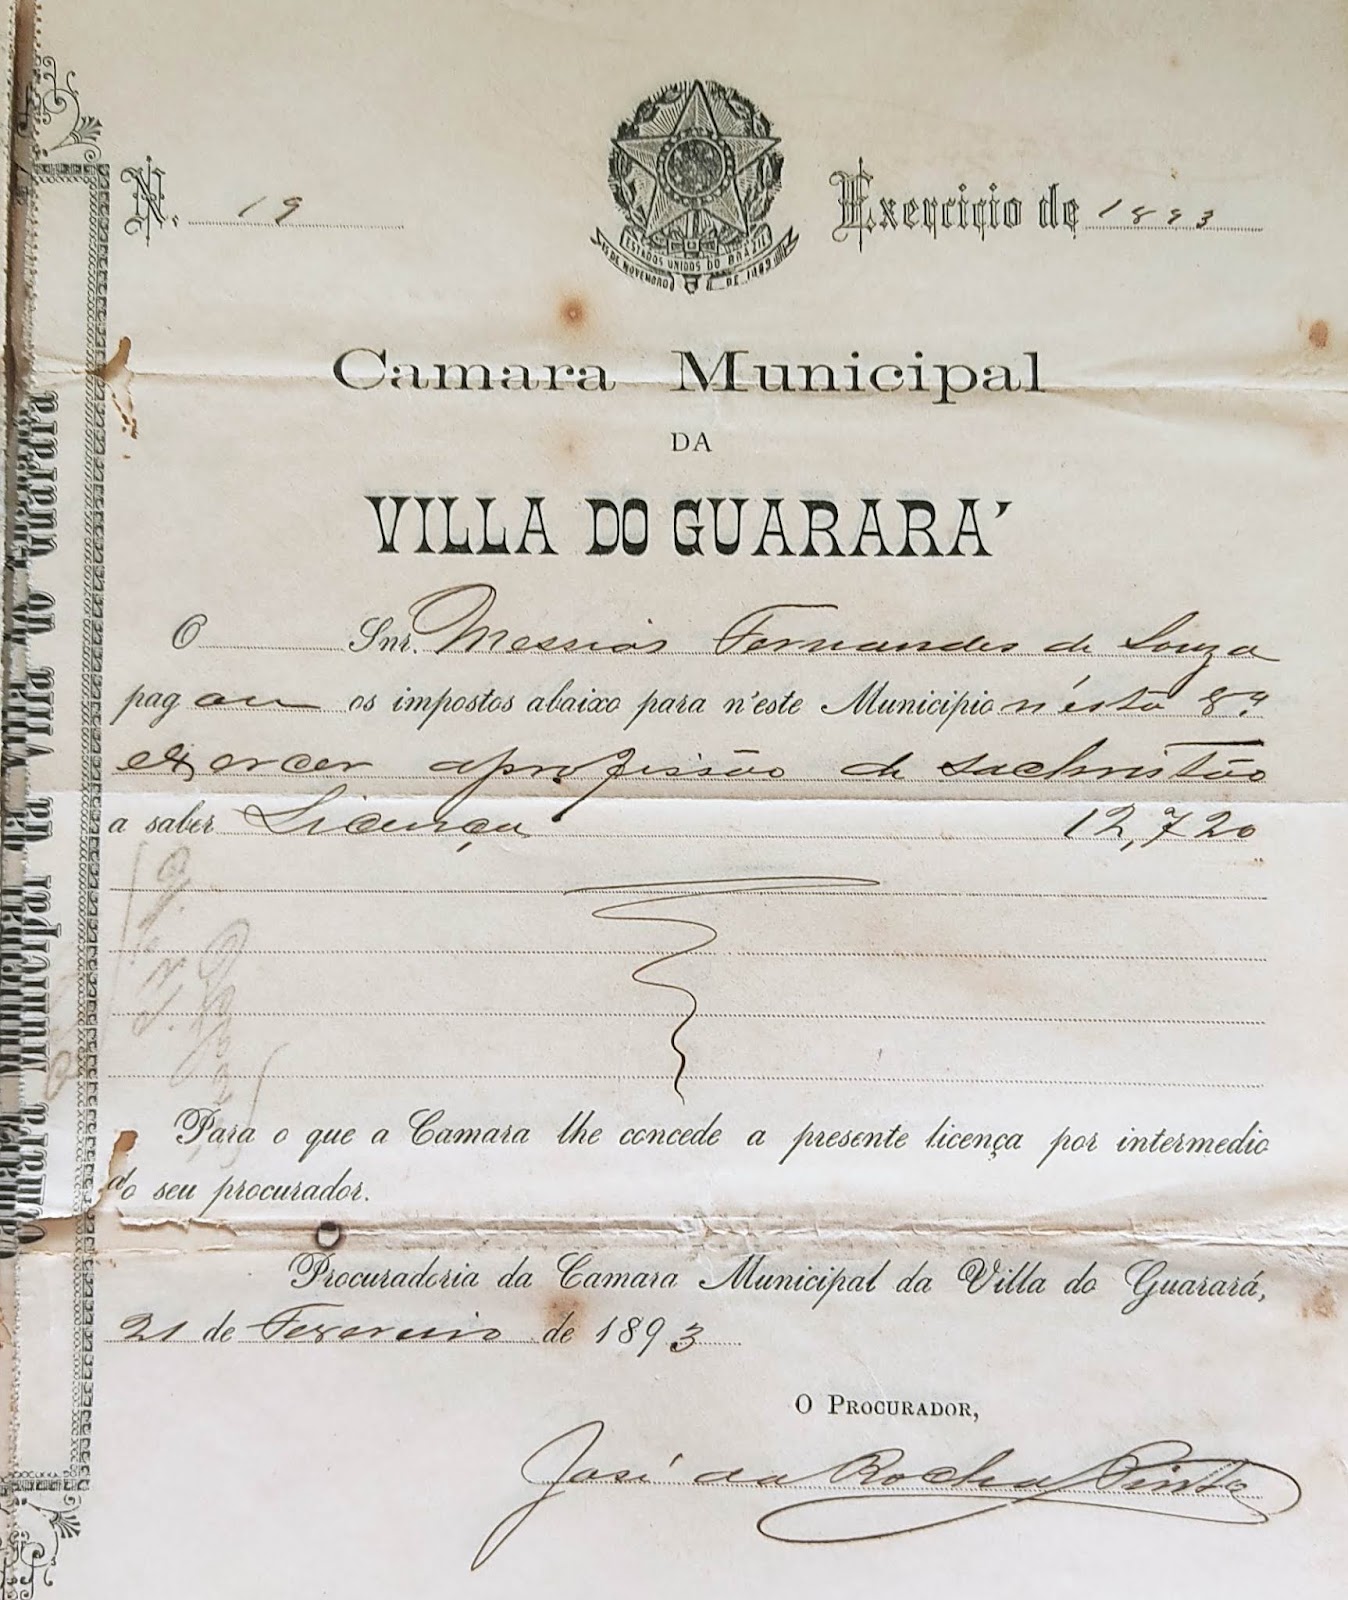 N. 19
Exercicio de 1893
ESTADOS UNIDOS DO BRAZIL
15 DE NOVEMBRO DE 1889
Camara Municipal
DA
VILLA DO GUARARA'
O Snr. Messias Fernandes de Souza
pagou os impostos abaixo para n'este Municipio n'esta
exercer a profissão de sachristão
a saber Licença 12,720
Para o que a Camara lhe concede a presente licença por intermedio
do seu procurador.
Procuradoria da Camara Municipal da Villa do Guarará,
21 de Fevereiro de 1893
O PROCURADOR,
José da Rocha Pinto
Camara Municipal da Villa do Guarara